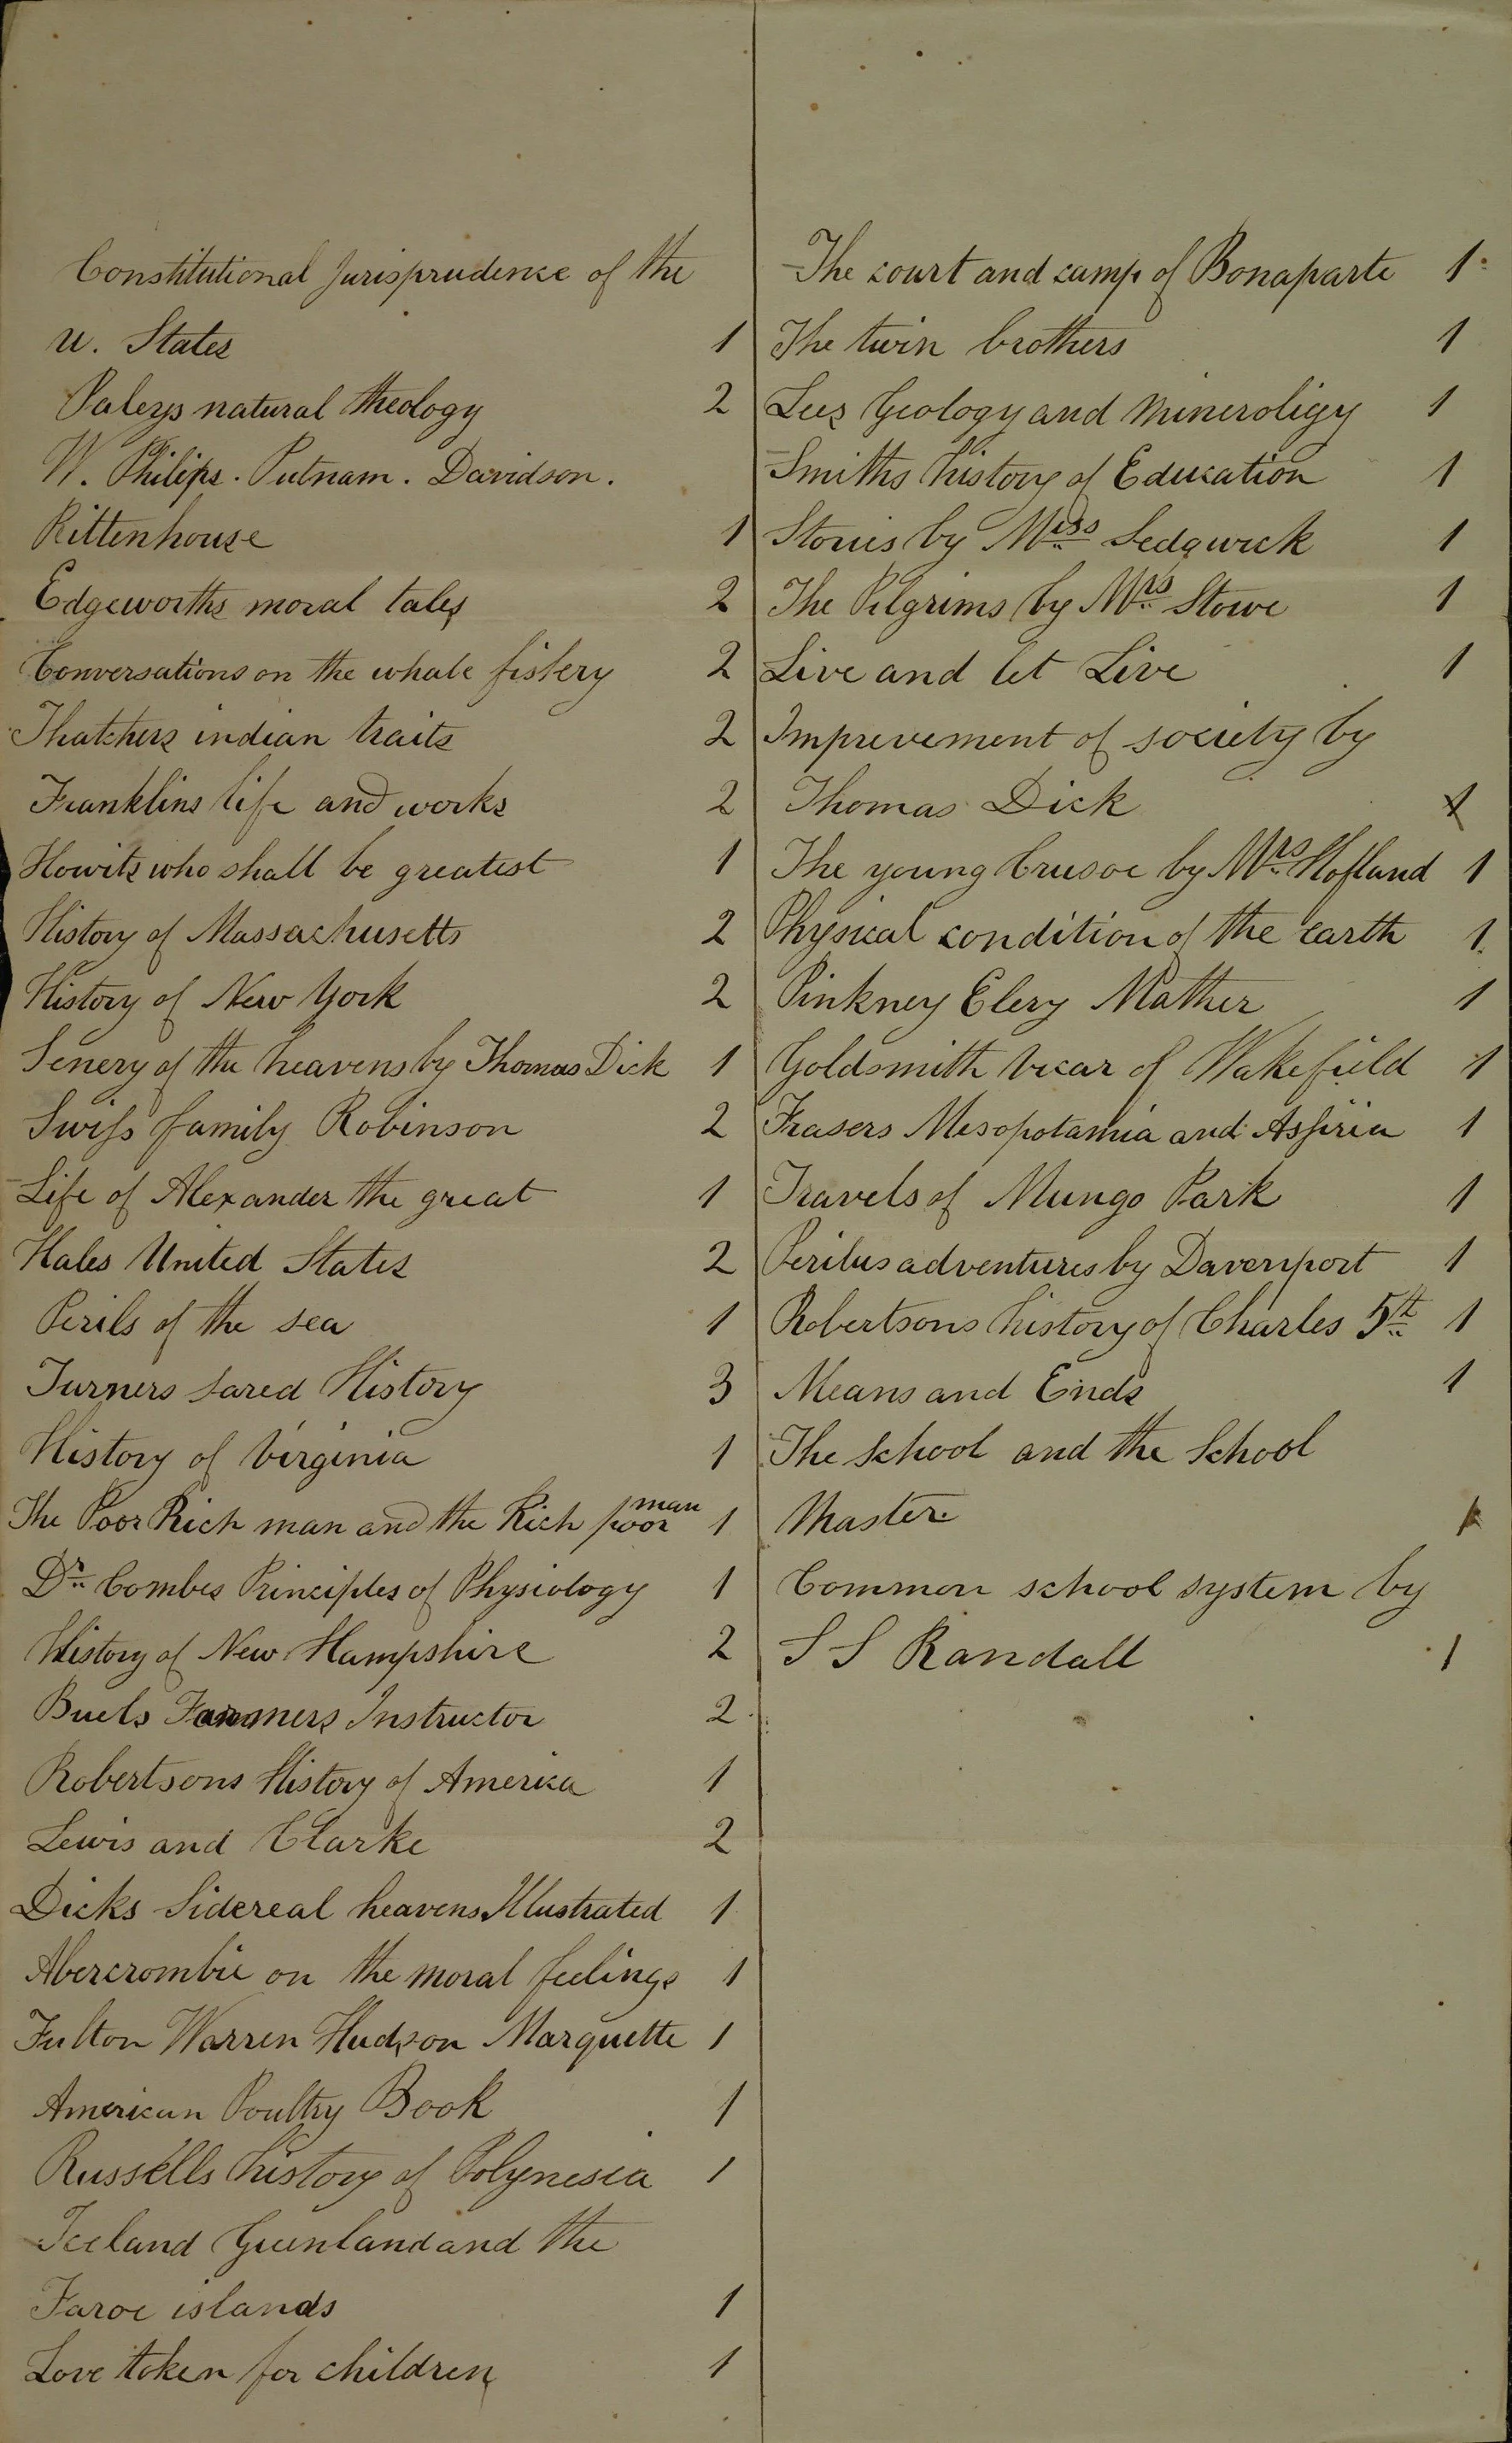 Constitutional Jurisprudence of the
U. States 1
Paleys natural theology 2
W. Philips. Putnam. Davidson.
Rittenhouse 1
Edgeworths moral tales 2
Conversations on the whale fishery 2
Thatchers indian traits 2
Franklins life and works 2
Howits who shall be greatest 1
History of Massachusetts 2
History of New York 2
Senery of the heavens by Thomas Dick 1
Swiss family Robinson 2
Life of Alexander the great 1
Hales United States 2
Perils of the sea 1
Turners sared History 3
History of Virginia 1
The Poor Rich man and the Rich poor man 1
Dr. Combes Principles of Physiology 1
History of New Hampshire 2
Buels Farmers Instructor 2
Robertsons History of America 1
Lewis and Clarke 2
Dicks Sidereal heavens Illustrated 1
Abercrombie on the moral feelings 1
Fulton Warren Hudson Marquette 1
American Poultry Book 1
Russells history of Polynesia 1
Iceland Greenland and the
Faroe islands 1
Love token for children 1
The court and camp of Bonaparte 1
The twin brothers 1
Lees Geology and mineroligy 1
Smiths history of Education 1
Stories by Miss Sedgwick 1
The Pilgrims by Mrs Stowe 1
Live and let Live 1
Imprevement of society by
Thomas Dick 1
The young Crusoe by Mrs Hofland 1
Physical condition of the earth 1
Pinkney Elery Mather 1
Goldsmith Vicar of Wakefield 1
Frasers Mesopotamia and Assiria 1
Travels of Mungo Park 1
Perilus adventures by Davenport 1
Robertsons history of Charles 5th 1
Means and Ends 1
The School and the School
Master. 1
Common school system by
S S Randall 1